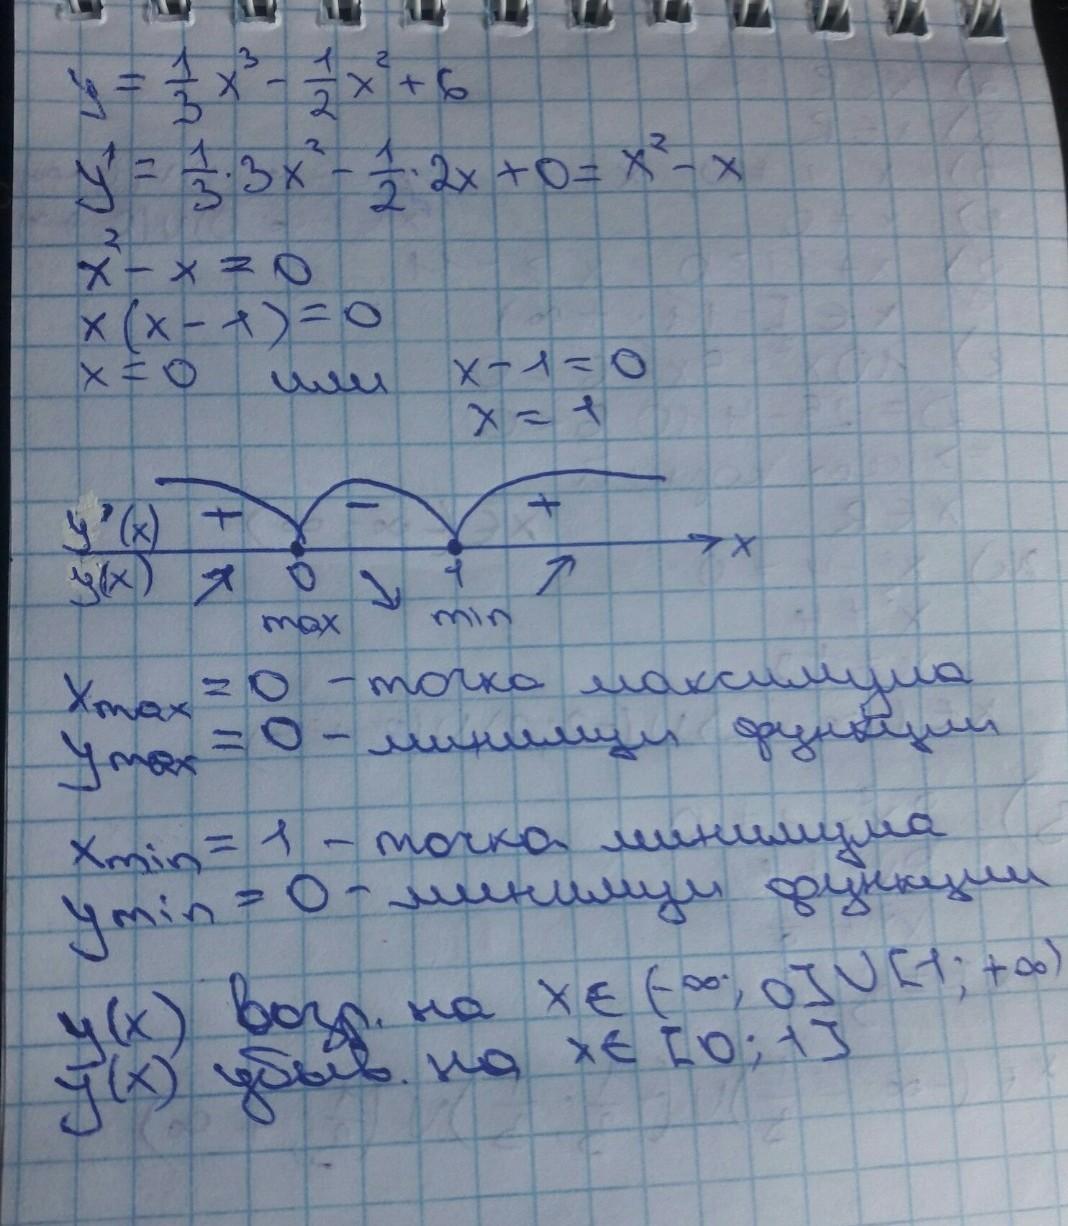 y = 1/3 x³ - 1/2 x² + 6
y' = 1/3 · 3x² - 1/2 · 2x + 0 = x² - x
x² - x = 0
x(x - 1) = 0
x = 0 или x - 1 = 0
x = 1
y'(x) + - + x
y(x) ↗ 0 ↘ 1 ↗
max min
xmax = 0 - точка максимума
ymax = 0 - минимум функции
xmin = 1 - точка минимума
ymin = 0 - минимум функции
y(x) возр. на x∈(-∞; 0]∪[1; +∞)
y(x) убыв. на x∈[0; 1]